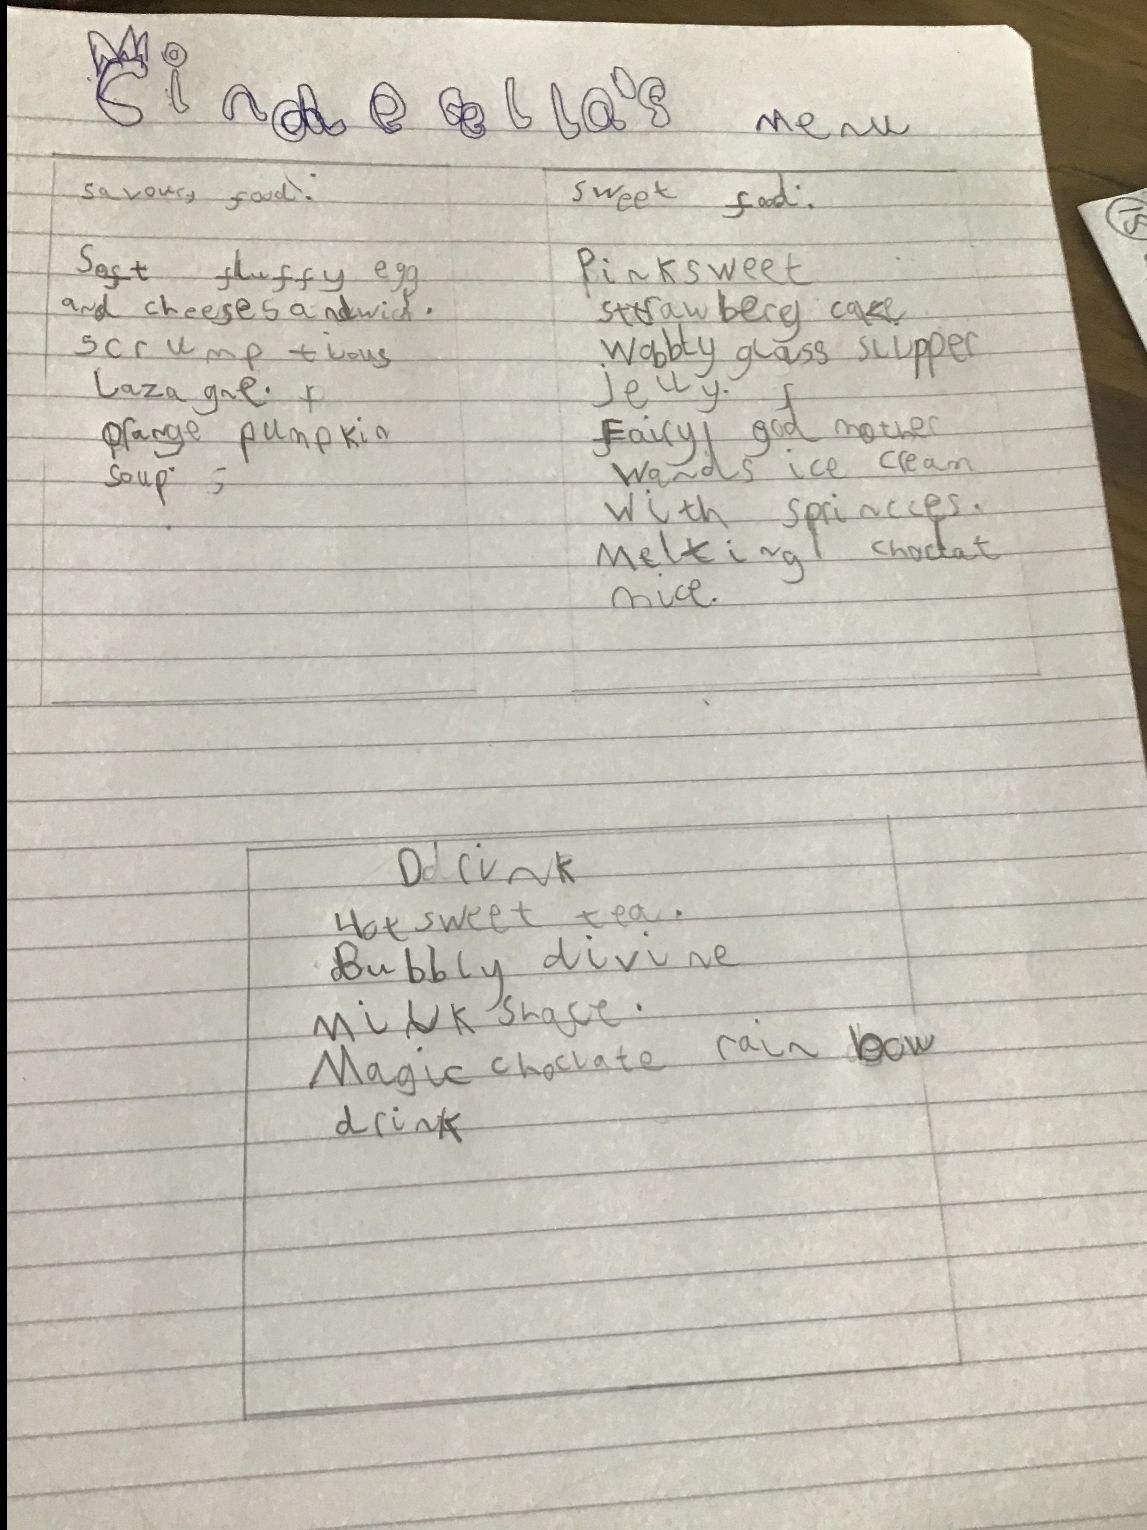 Cindeella's menu
savoury food:
Soft fluffy egg
and cheese sandwich.
scrumptious
Lazagne.
orange pumpkin
soup
sweet food:
Pink sweet
strawbery cake
Wobbly glass slipper
jelly.
Fairy god mother
wands ice cream
with sprincces.
Melting choclat
mice.
Ddrink
Hot sweet tea.
Bubbly divine
Milk shace.
Magic choclate rain bow
drink
15